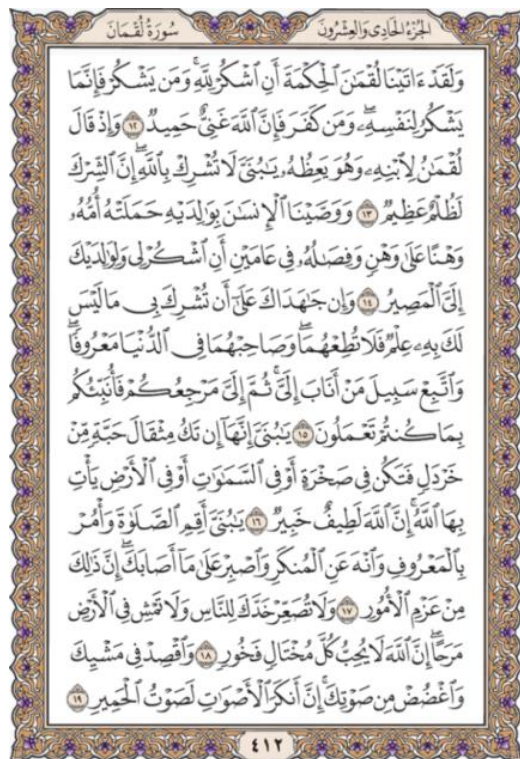 الجُزْءُ الحَادِي وَالعِشْرُونَ
سُورَةُ لُقْمَانَ
وَلَقَدْ ءَاتَيْنَا لُقْمَٰنَ ٱلْحِكْمَةَ أَنِ ٱشْكُرْ لِلَّهِۚ وَمَن يَشْكُرْ فَإِنَّمَا
يَشْكُرُ لِنَفْسِهِۦۖ وَمَن كَفَرَ فَإِنَّ ٱللَّهَ غَنِيٌّ حَمِيدٌ ١٢ وَإِذْ قَالَ
لُقْمَٰنُ لِٱبْنِهِۦ وَهُوَ يَعِظُهُۥ يَٰبُنَيَّ لَا تُشْرِكْ بِٱللَّهِۖ إِنَّ ٱلشِّرْكَ
لَظُلْمٌ عَظِيمٌ ١٣ وَوَصَّيْنَا ٱلْإِنسَٰنَ بِوَٰلِدَيْهِ حَمَلَتْهُ أُمُّهُۥ
وَهْنًا عَلَىٰ وَهْنٍ وَفِصَٰلُهُۥ فِي عَامَيْنِ أَنِ ٱشْكُرْ لِي وَلِوَٰلِدَيْكَ
إِلَيَّ ٱلْمَصِيرُ ١٤ وَإِن جَٰهَدَاكَ عَلَىٰٓ أَن تُشْرِكَ بِي مَا لَيْسَ
لَكَ بِهِۦ عِلْمٌ فَلَا تُطِعْهُمَاۖ وَصَاحِبْهُمَا فِي ٱلدُّنْيَا مَعْرُوفًاۖ
وَٱتَّبِعْ سَبِيلَ مَنْ أَنَابَ إِلَيَّۚ ثُمَّ إِلَيَّ مَرْجِعُكُمْ فَأُنَبِّئُكُم
بِمَا كُنتُمْ تَعْمَلُونَ ١٥ يَٰبُنَيَّ إِنَّهَآ إِن تَكُ مِثْقَالَ حَبَّةٍ مِّنْ
خَرْدَلٍ فَتَكُن فِي صَخْرَةٍ أَوْ فِي ٱلسَّمَٰوَٰتِ أَوْ فِي ٱلْأَرْضِ يَأْتِ
بِهَا ٱللَّهُۚ إِنَّ ٱللَّهَ لَطِيفٌ خَبِيرٌ ١٦ يَٰبُنَيَّ أَقِمِ ٱلصَّلَوٰةَ وَأْمُرْ
بِٱلْمَعْرُوفِ وَٱنْهَ عَنِ ٱلْمُنكَرِ وَٱصْبِرْ عَلَىٰ مَآ أَصَابَكَۖ إِنَّ ذَٰلِكَ
مِنْ عَزْمِ ٱلْأُمُورِ ١٧ وَلَا تُصَعِّرْ خَدَّكَ لِلنَّاسِ وَلَا تَمْشِ فِي ٱلْأَرْضِ
مَرَحًاۖ إِنَّ ٱللَّهَ لَا يُحِبُّ كُلَّ مُخْتَالٍ فَخُورٍ ١٨ وَٱقْصِدْ فِي مَشْيِكَ
وَٱغْضُضْ مِن صَوْتِكَۚ إِنَّ أَنكَرَ ٱلْأَصْوَٰتِ لَصَوْتُ ٱلْحَمِيرِ ١٩
٤١٢